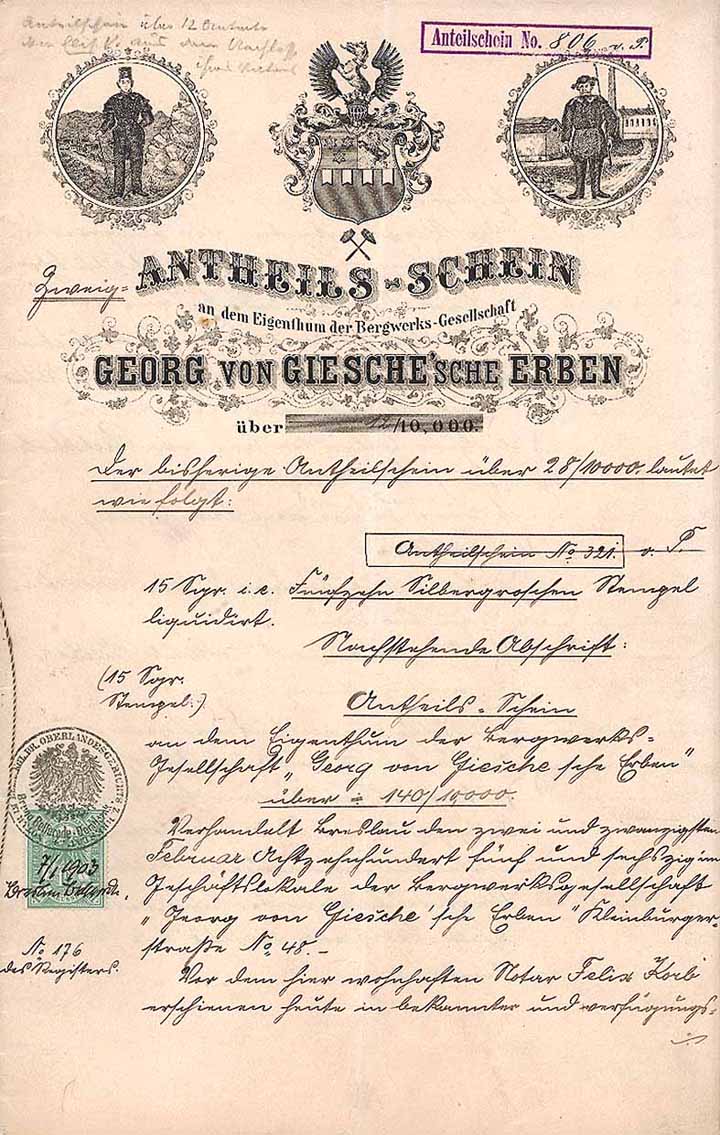 Anteilschein über 12 Anteile
aus dem Nachlass
Anteilschein No. 806 v. P.
Zweig=
ANTHEILS-SCHEIN
an dem Eigenthum der Bergwerks-Gesellschaft
GEORG VON GIESCHE'SCHE ERBEN
über 12/10,000.
Der bisherige Antheilschein über 28/10000 lautet
wie folgt:
Antheilschein No. 321. v. P.
15 Sgr. i. e. Fünfzehn Silbergroschen Stempel
liquidirt.
Nachstehende Abschrift:
(15 Sgr.
Stempel.)
Antheils-Schein
an dem Eigenthum der Bergwerks-
Gesellschaft „Georg von Giesche'sche Erben"
über = 140/10,000.
Verhandelt Breslau den zwei und zwanzigsten
Februar Achtzehnhundert fünf und sechszig im
Geschäftslokale der Bergwerksgesellschaft
„Georg von Giesche'sche Erben" Kleinburger-
straße No. 48.-
Vor dem hier wohnhaften Notar Felix Korb
erschienen heute in bekannter und verfügungs-
OBERLANDESGERICHTS
7/1 1903
No. 176
des Registers.